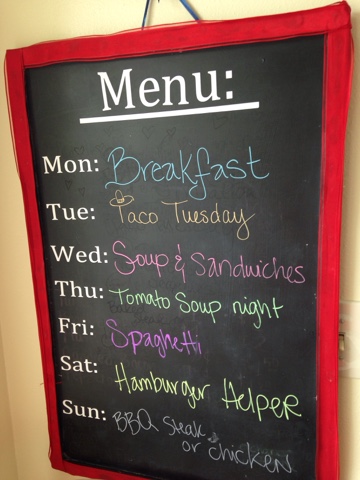 Menu:
Mon: Breakfast
Tue: Taco Tuesday
Wed: Soup & Sandwiches
Thu: Tomato Soup night
Fri: Spaghetti
Sat: Hamburger Helper
Sun: BBQ Steak
or chicken